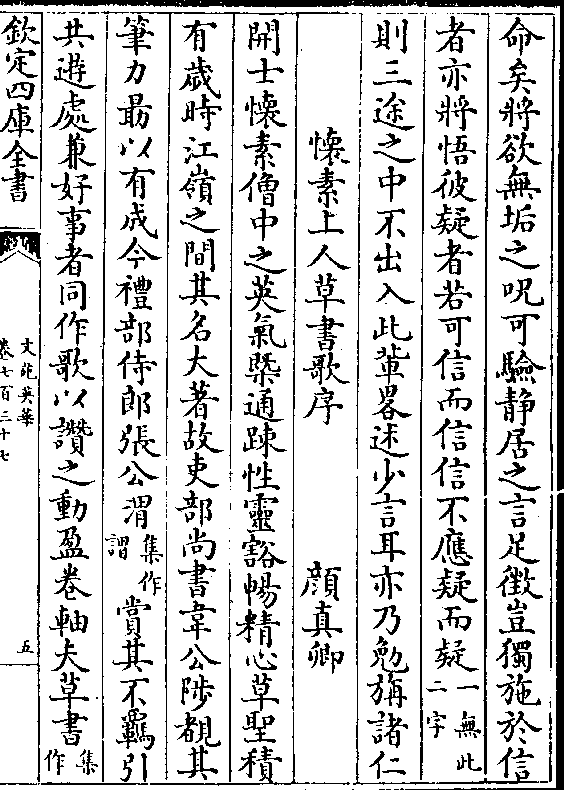 命矣將欲無垢之呪可驗静居之言足徴豈獨施於信
者亦將悟彼疑者若可信而信信不應疑而疑一無此二字
則三途之中不出入此軰畧述少言耳亦乃勉旃諸仁
懐素上人草書歌序 顔真卿
開士懐素僧中之英氣槩通踈性靈豁暢精心草聖積
有歳時江嶺之間其名大著故吏部尚書韋公陟覩其
筆力朂以有成今禮部侍郎張公渭集作謂賞其不羈引
共遊處兼好事者同作歌以讚之動盈卷軸夫草書集作
欽定四庫全書
文苑英華
卷七百三十七
五